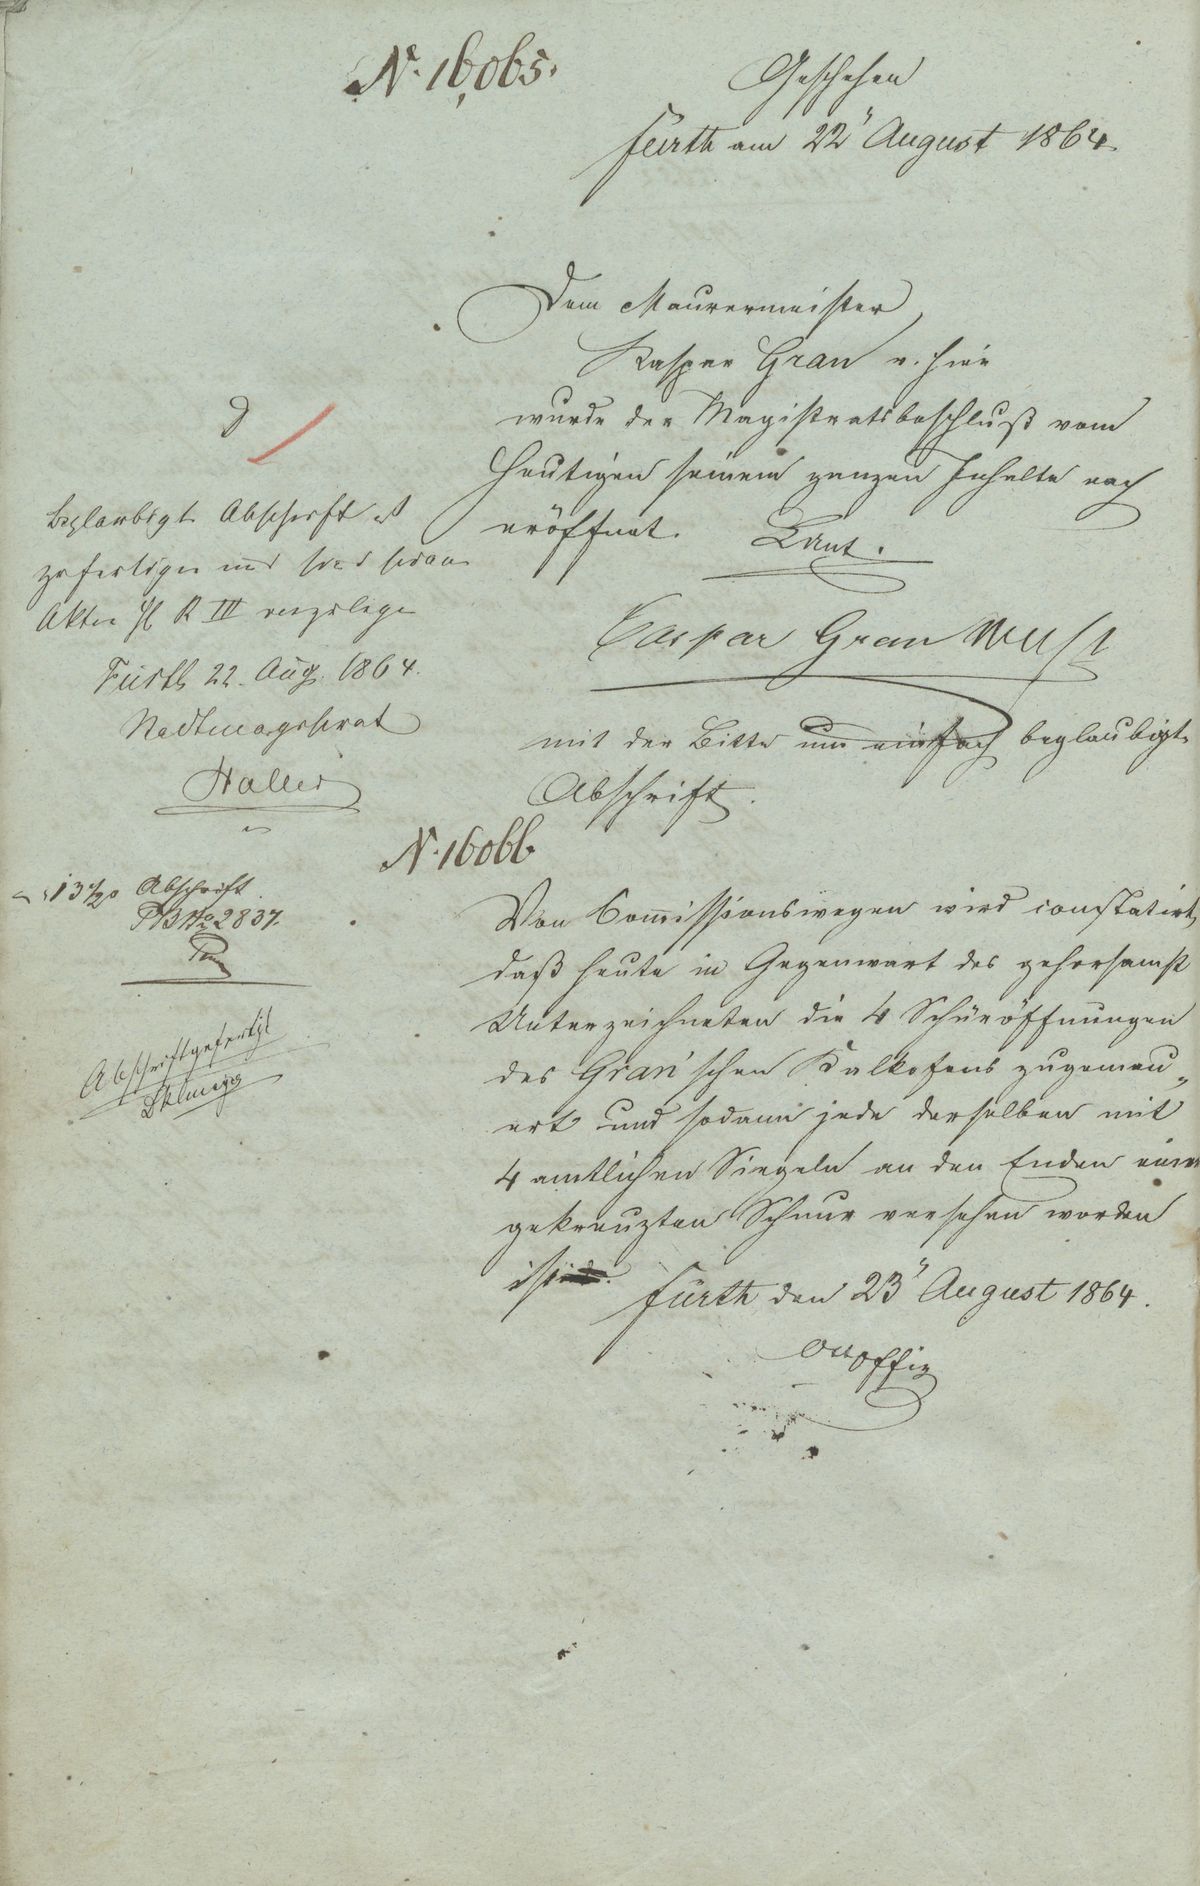 N. 16,065.
Geschehen
Fürth am 22 August 1864.
Dem Maurermeister
Kaspar Gran v. hier
wurde der Magistratsbeschluß vom
Heutigen seinem ganzen Inhalte nach
eröffnet.
Caspar Gran
mit der Bitte um einfach beglaubigte
Abschrift.
Beglaubigte Abschrift ist
zu fertigen und
Akten R III
Fürth 22. Aug. 1864.
Stadtmagistrat
Haller
13 Abschrift
No 2837.
Abschrift gefertigt
N. 16066
Von Commissionswegen wird constatirt,
daß heute in Gegenwart des gehorsamst
Unterzeichneten die 4 Schüröffnungen
des Gran'schen Kalkofens zugemau„
ert und sodann jede derselben mit
4 amtlichen Siegeln an den Enden einer
gekreuzten Schnur versehen worden
ist.
Fürth den 23 August 1864.